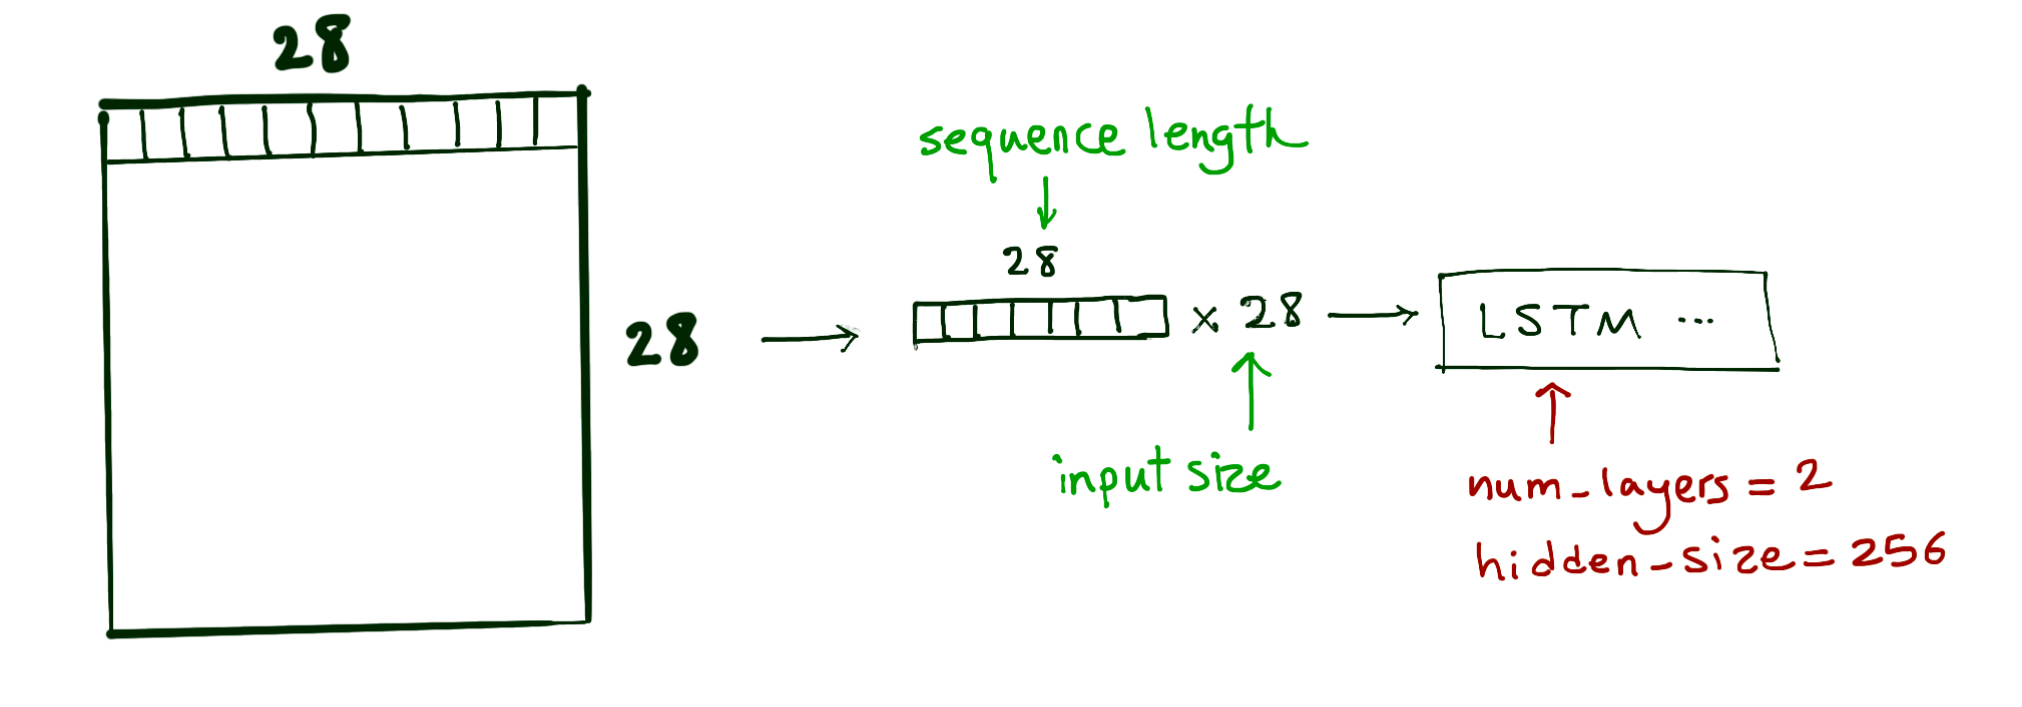 28
28
sequence length
28
× 28
LSTM ...
input size
num_layers = 2
hidden_size = 256